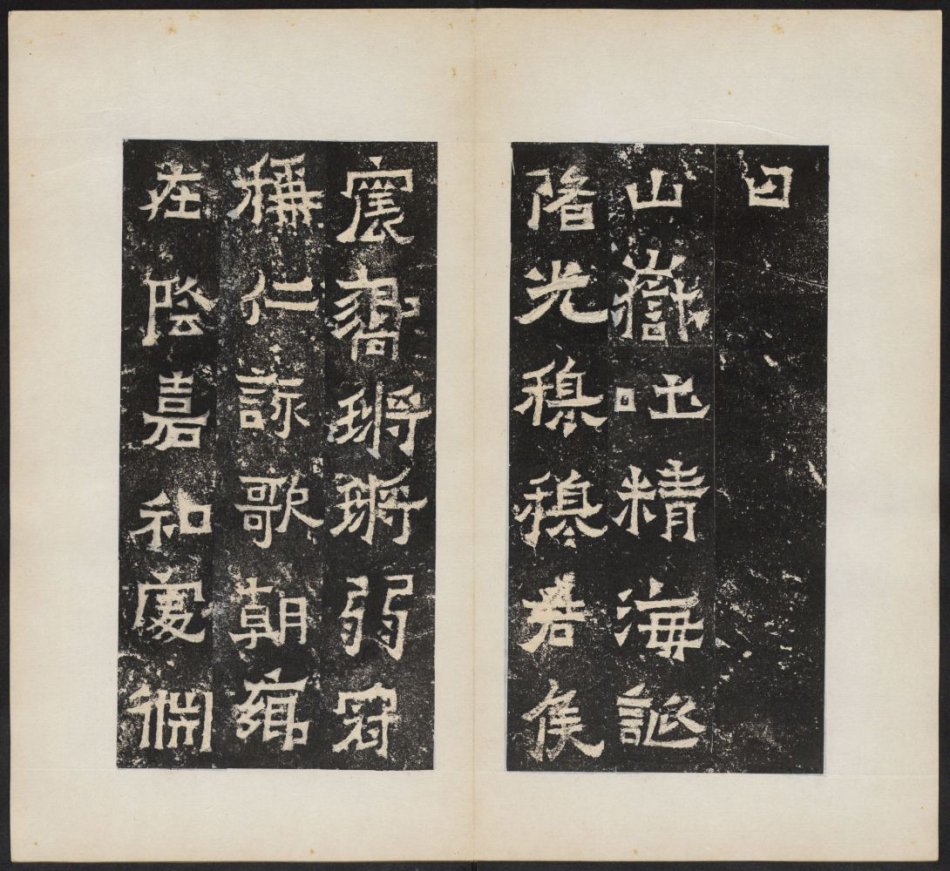 曰
山嶽吐精海誕
隆光穆穆君侯
震響鏘鏘弱冠
稱仁詠歌朝鄉
在陰嘉和處淵